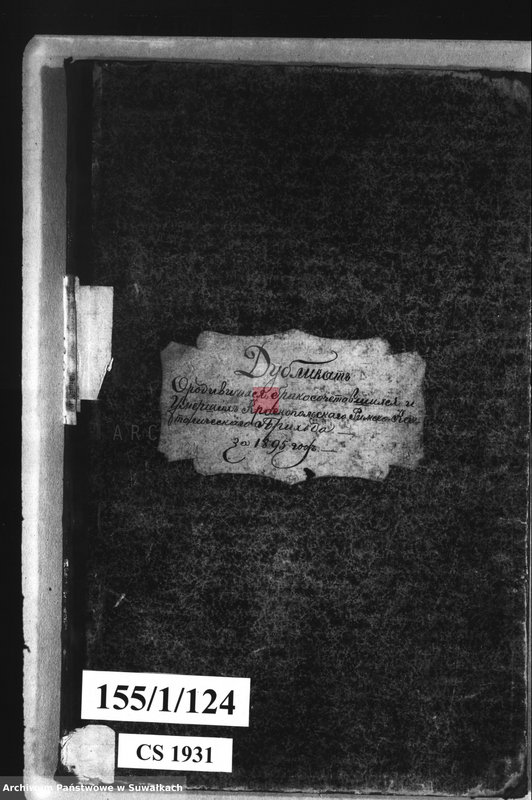 Дубликатъ
О родившихся, бракосочетавшихся и
Умершихъ Краснопольскаго Римско-Ка-
толическаго Прихода
За 1895 годъ.
155/1/124
CS 1931
Archiwum Państwowe w Suwałkach